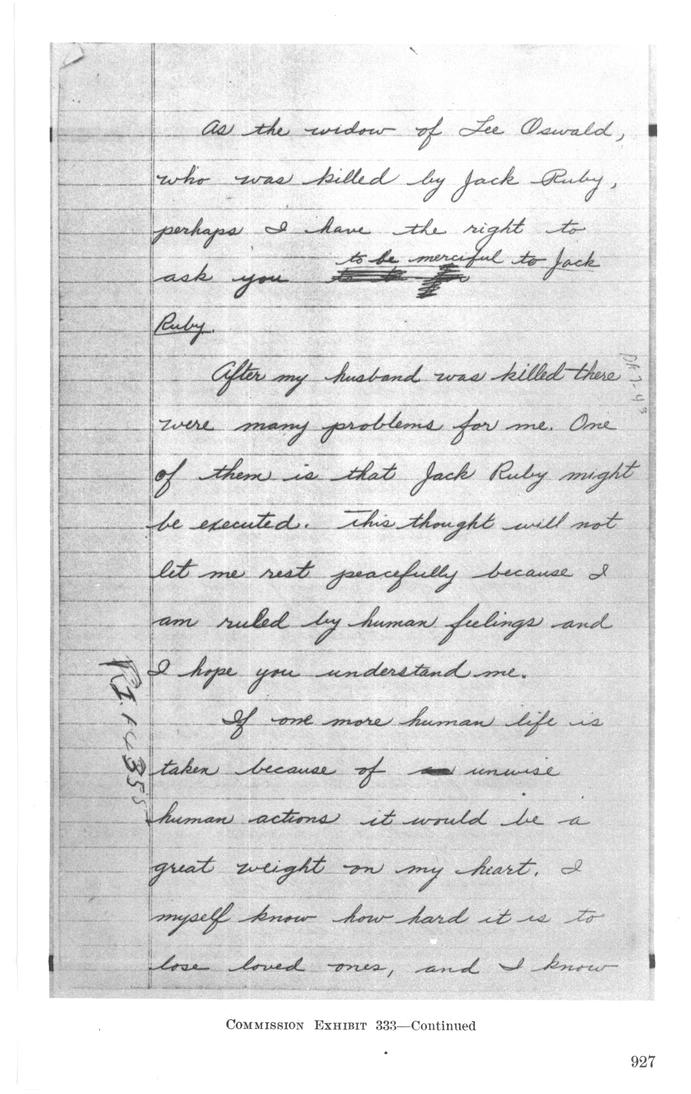 As the widow of Lee Oswald,
who was killed by Jack Ruby,
perhaps I have the right to
ask you to be merciful to Jack
Ruby.
After my husband was killed there
were many problems for me. One
of them is that Jack Ruby might
be executed. This thought will not
let me rest peacefully because I
am ruled by human feelings and
I hope you understand me.
If one more human life is
taken because of unwise
human actions it would be a
great weight on my heart. I
myself know how hard it is to
lose loved ones, and I know
COMMISSION EXHIBIT 333—Continued
927